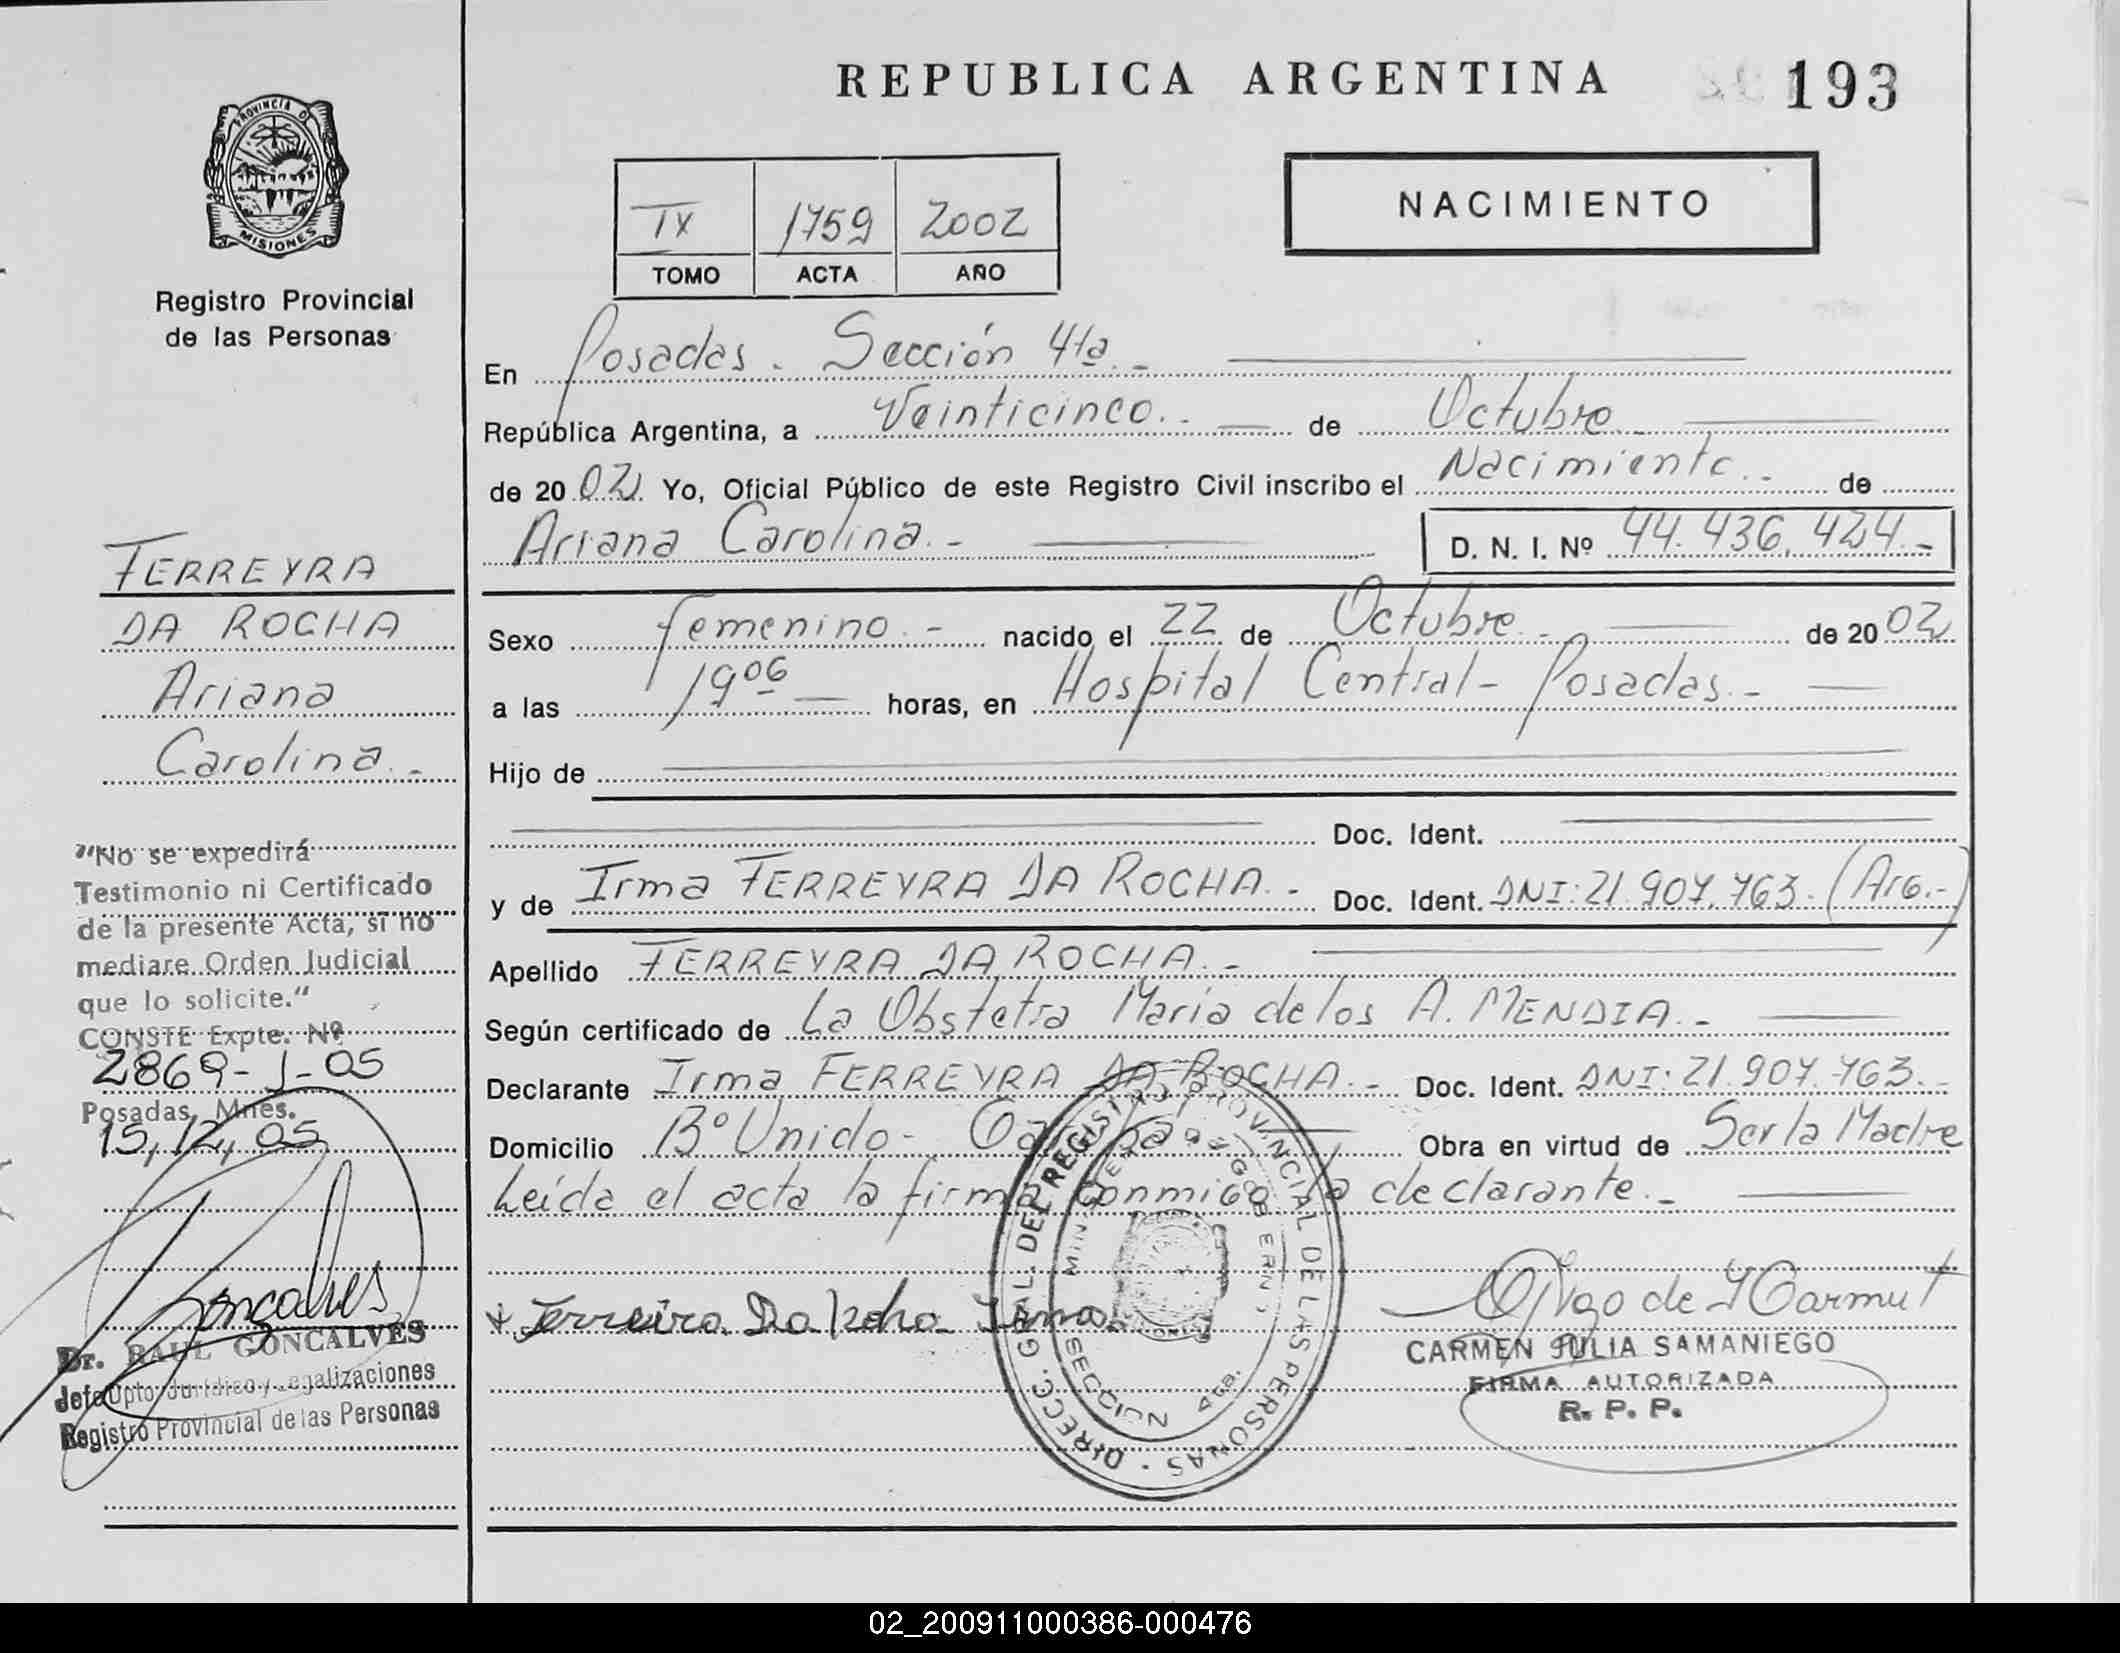 REPUBLICA ARGENTINA
193
PROVINCIA D
MISIONES
Registro Provincial
de las Personas
IX 1759 2002
TOMO ACTA AÑO
NACIMIENTO
En Posadas. Sección 4ta.-
República Argentina, a Veinticinco.- de Octubre
de 2002. Yo, Oficial Público de este Registro Civil inscribo el Nacimiento.- de
Ariana Carolina.- D. N. I. Nº 44.436.424.-
Sexo femenino.- nacido el 22 de Octubre.- de 2002
a las 19 06 horas, en Hospital Central- Posadas.-
Hijo de
Doc. Ident.
y de Irma FERREYRA DA ROCHA.- Doc. Ident. DNI: 21.907.763. (Arg.-)
Apellido FERREYRA DA ROCHA.-
Según certificado de La Obstetra María de los A. MENDIA.-
Declarante Irma FERREYRA DA ROCHA.- Doc. Ident. DNI: 21.907.763.-
Domicilio Bº Unido- Obra en virtud de Ser la Madre
Leída el acta la firma conmigo la declarante.-
Ferreira Da Rocha Irma
CARMEN JULIA SAMANIEGO
FIRMA AUTORIZADA
R. P. P.
DIRECC. GRAL. DEL REGISTRO PROVINCIAL DE LAS PERSONAS
SECCION 4ta.
FERREYRA
DA ROCHA
Ariana
Carolina.-
"No se expedirá
Testimonio ni Certificado
de la presente Acta, si no
mediare Orden Judicial
que lo solicite."
CONSTE Expte. Nº
2869-J-05
Posadas, Mnes.
15,12,05
Goncalves
Dr. RAUL GONCALVES
Jefe Dpto. Jurídico y Legalizaciones
Registro Provincial de las Personas
02_200911000386-000476